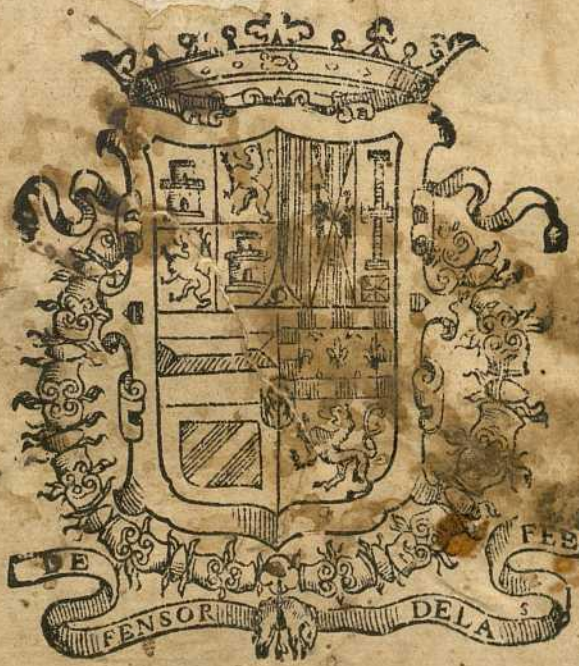 DE FENSOR DELA S FEE